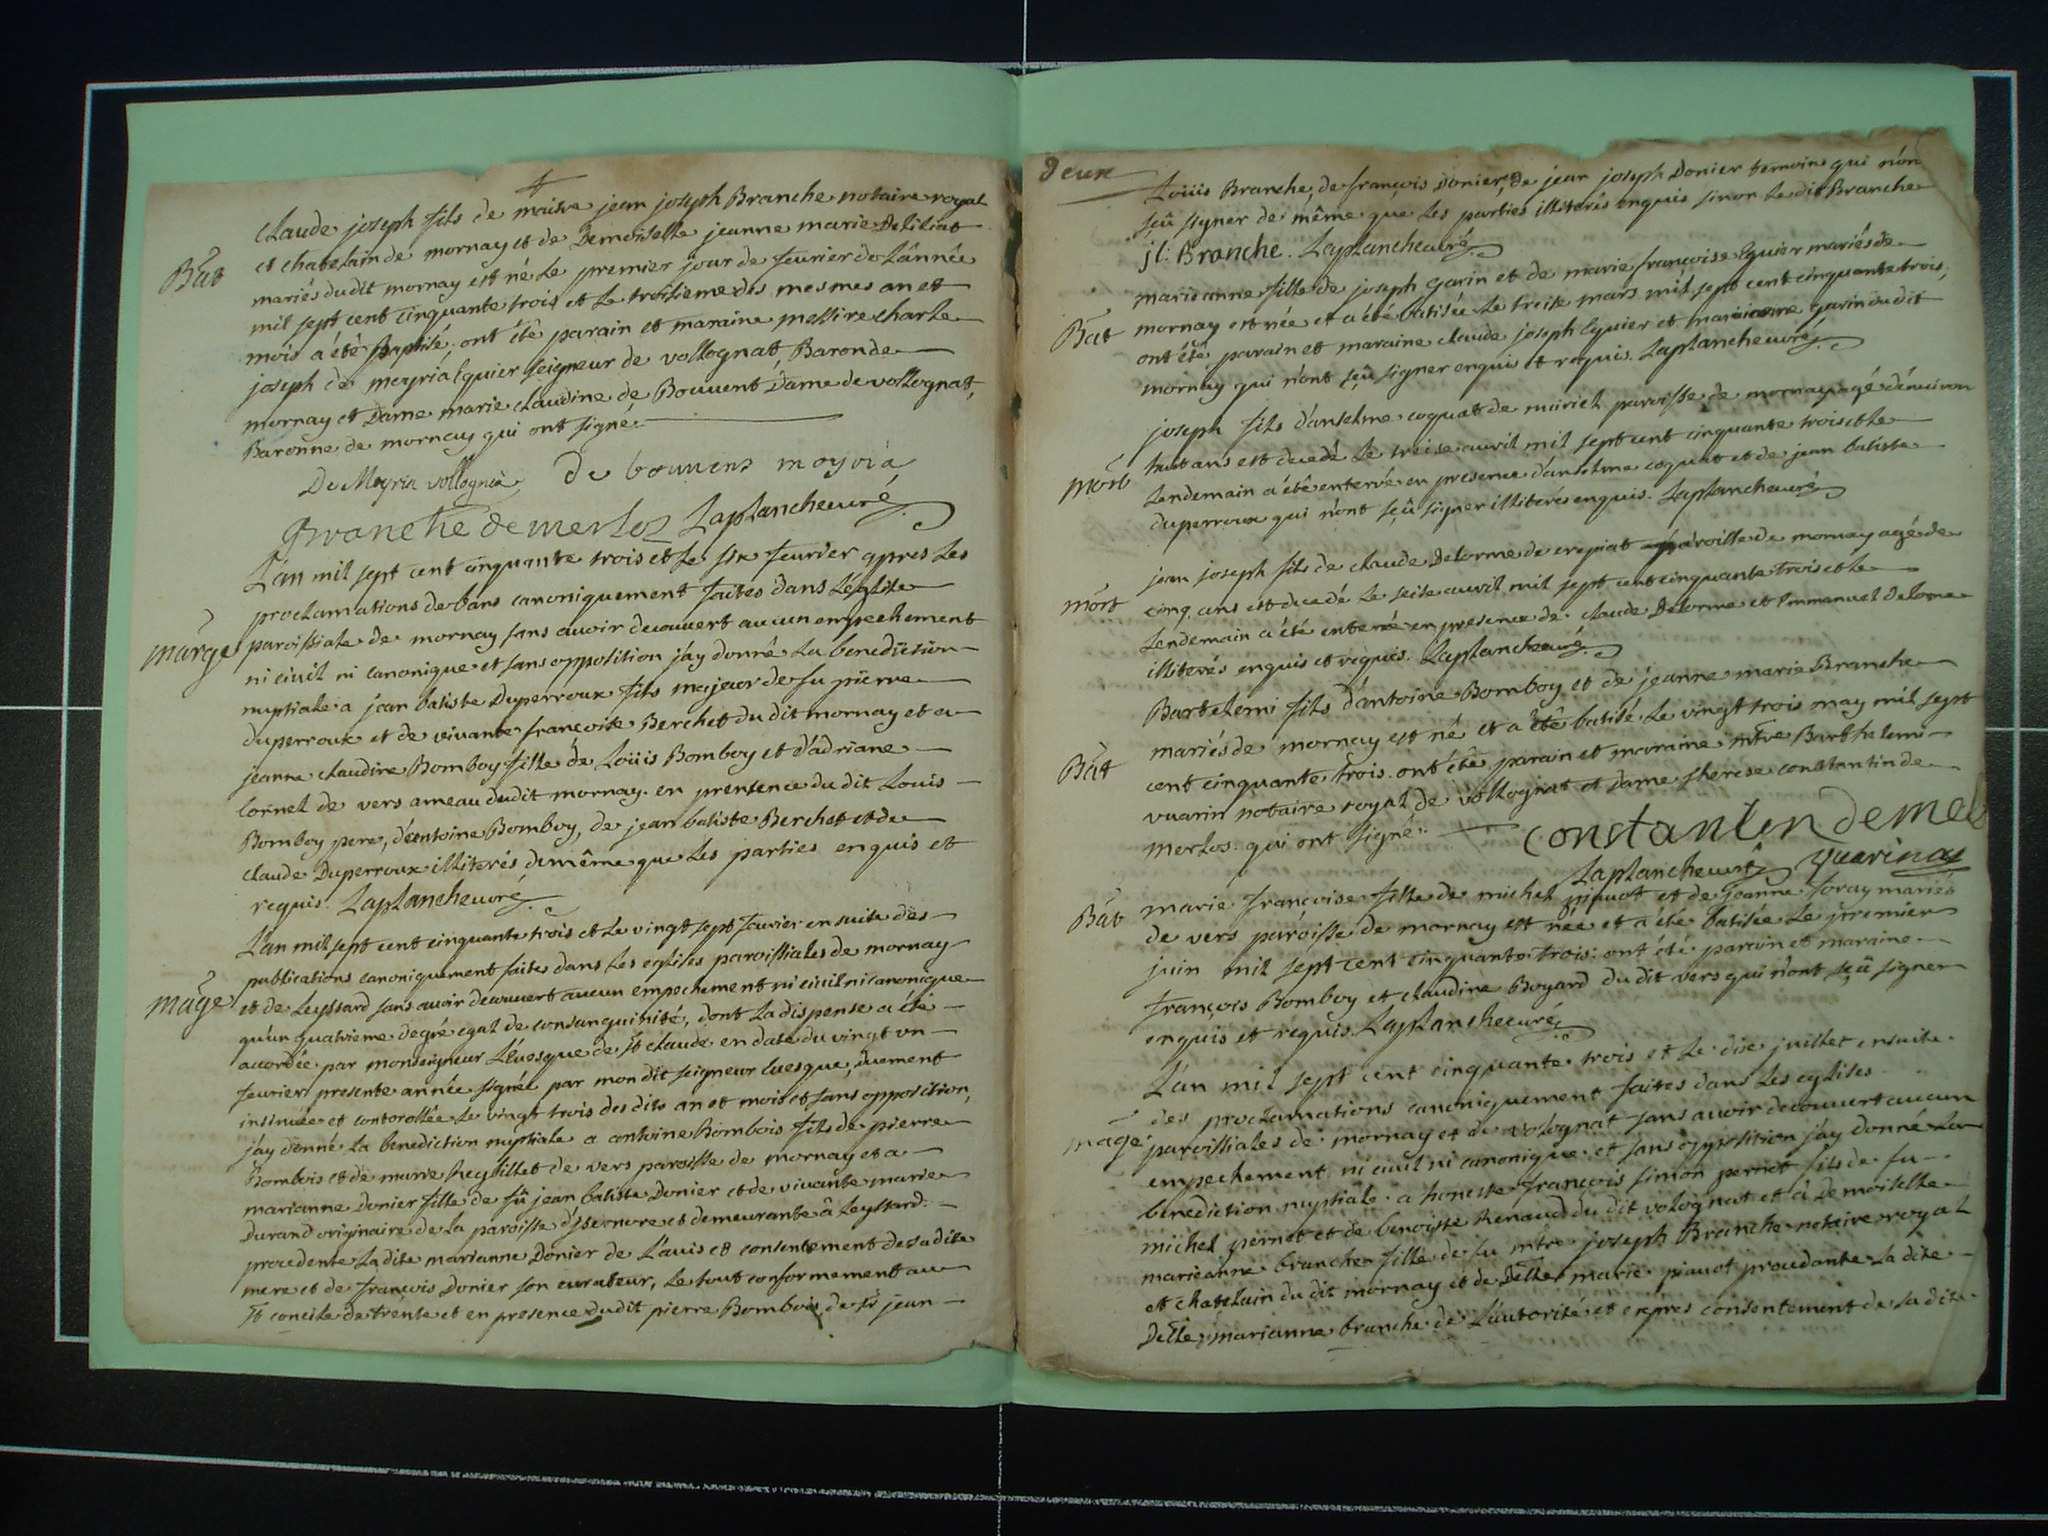 Bat
Claude joseph fils de maistre jean joseph Branche notaire royal
et chatelain de mornay et de Demoiselle jeanne marie Deliliat
mariés dudit mornay est né le premier jour de fevrier de l'année
mil sept cent cinquante trois et le troisieme des mesmes an et
mois a été Baptisé, ont été parain et maraine messire charle
joseph de meyria Eguier seigneur de vollognat, Baron de
mornay et Dame marie claudine de Bouvent Dame de vollognat,
Baronne de mornay qui ont signé.
De Meyria vollognia de bouvens meyria
Branche de merloz Laplanche curé
marge
L'an mil sept cent cinquante trois et le six fevrier apres les
proclamations de bans canoniquement faites dans L'eglise
paroissiale de mornay sans avoir decouvert aucun empechement
ni civil ni canonique et sans opposition j'ay donné la benediction
nuptiale a jean batiste Duperroux fils majeur de fu pierre
duperroux et de vivante françoise Berchet du dit mornay et a
jeanne claudine Bomboy fille de Loüis Bomboy et d'adriane
Cornel de vers ameau dudit mornay. en prensence du dit Louis
Bomboy pere, d'entoine Bomboy, de jean batiste Berchet et de
claude Duperroux illiterés demême que les parties enquis et
requis. Laplanche curé
mage
L'an mil sept cent cinquante trois et le vingt sept fevrier ensuite des
publications canoniquement faites dans les eglises paroissiales de mornay
et de Leyssard sans avoir decouvert aucun empechement ni civil ni canonique
qu'un quatrieme degré egal de consanguinité, dont la dispense a été
accordée par monseigneur L'évesque de st claude en date du vingt un
fevrier presente année signée par mon dit seigneur evesque, duement
insinuée et controllée le vingt trois des dits an et mois et sans opposition,
j'ay donné la benediction nuptiale a antoine Bombois fils de pierre
Bombois et de marie Reydillet de vers paroisse de mornay et a
marianne Donier fille de fû jean batiste Donier et de vivante marie
Durand originaire de la paroisse d'jsernore et demeurante â Leyssard.
procedente la dite marianne Donier de L'avis et consentement de sa dite
mere et de françois Donier son curateur, le tout conformement au
st concile de trente et en presence dudit pierre Bombois, de sr jean
Deux
Loüis Branche, de françois Donier, de jean joseph Donier temoins qui n'on
seû signer de même que les parties illiterés enquis sinon le dit Branche
jl: Branche. Laplanche curé
Bat
marie anne fille de joseph Garin et de marie françoise Eguier mariés de
mornay est née et a été batisée le treise mars mil sept cent cinquante trois,
ont été parain et maraine claude joseph Eguier et marieanne garin du dit
mornay qui n'ont seû signer enquis et requis. Laplanche curé
mort
joseph fils d'anselme coquat de muriel paroisse de mornay agé d'environ
huit ans est decedé le treise avril mil sept cent cinquante trois et le
lendemain a été enterré en presence d'anselme coquat et de jean batiste
duperroux qui n'ont seû signer illiterés enquis. Laplanche curé
mort
jean joseph fils de claude Delorme de crepiat paroisse de mornay agé de
cinq ans est decedé le seise avril mil sept cent cinquante trois et le
lendemain a été enterré en presence de claude Delorme et Emmanuel delorme
illiterés enquis et requis. Laplanche curé
Bat
Bartelemi fils d'antoine Bomboy et de jeanne marie Branche
mariés de mornay est né et a été batisé le vingt trois may mil sept
cent cinquante trois. ont été parain et maraine mtre Barthelemi
vuarin notaire royal de vollognat et dame therese constantin de
merlos qui ont signé: constantin de mel
Laplanche curé Vuarin
Bat
marie françoise fille de michel pivuot et de jeanne foray mariés
de vers paroisse de mornay est née et a été batisée le premier
juin mil sept cent cinquante trois: ont été parain et maraine
françois Bomboy et claudine Boyard du dit vers qui n'ont seû signer
enquis et requis. Laplanche curé
mage
L'an mil sept cent cinquante trois et le dise juillet ensuite
des proclamations canoniquement faites dans les eglises
paroissiales de mornay et de volognat sans avoir decouvert aucun
empechement ni civil ni canonique et sans opposition j'ay donné la
benediction nuptiale a honeste françois simon pernet fils de fu
michel pernet et de benoiste Renaud du dit volognat et a Demoiselle
marieanne branche fille de fu mtre joseph Branche notaire royal
et chatelain du dit mornay et de Delle marie pivuot procedante la dite
Delle marianne branche de L'autorité et expres consentement de sa dite